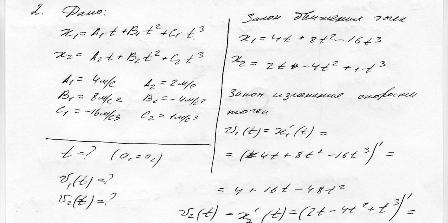 2. Дано:
x₁ = A₁t + B₁t² + C₁t³
x₂ = A₂t + B₂t² + C₂t³
A₁ = 4 м/с A₂ = 2 м/с
B₁ = 8 м/с² B₂ = -4 м/с²
C₁ = -16 м/с³ C₂ = 1 м/с³
t = ? (a₁ = a₂)
v₁(t) = ?
v₂(t) = ?
Закон движения точек
x₁ = 4t + 8t² - 16t³
x₂ = 2t - 4t² + 1·t³
Закон изменения скорости
точки
v₁(t) = x₁'(t) =
= (4t + 8t² - 16t³)' =
= 4 + 16t - 48t²
v₂(t) = x₂'(t) = (2t - 4t² + t³)' =